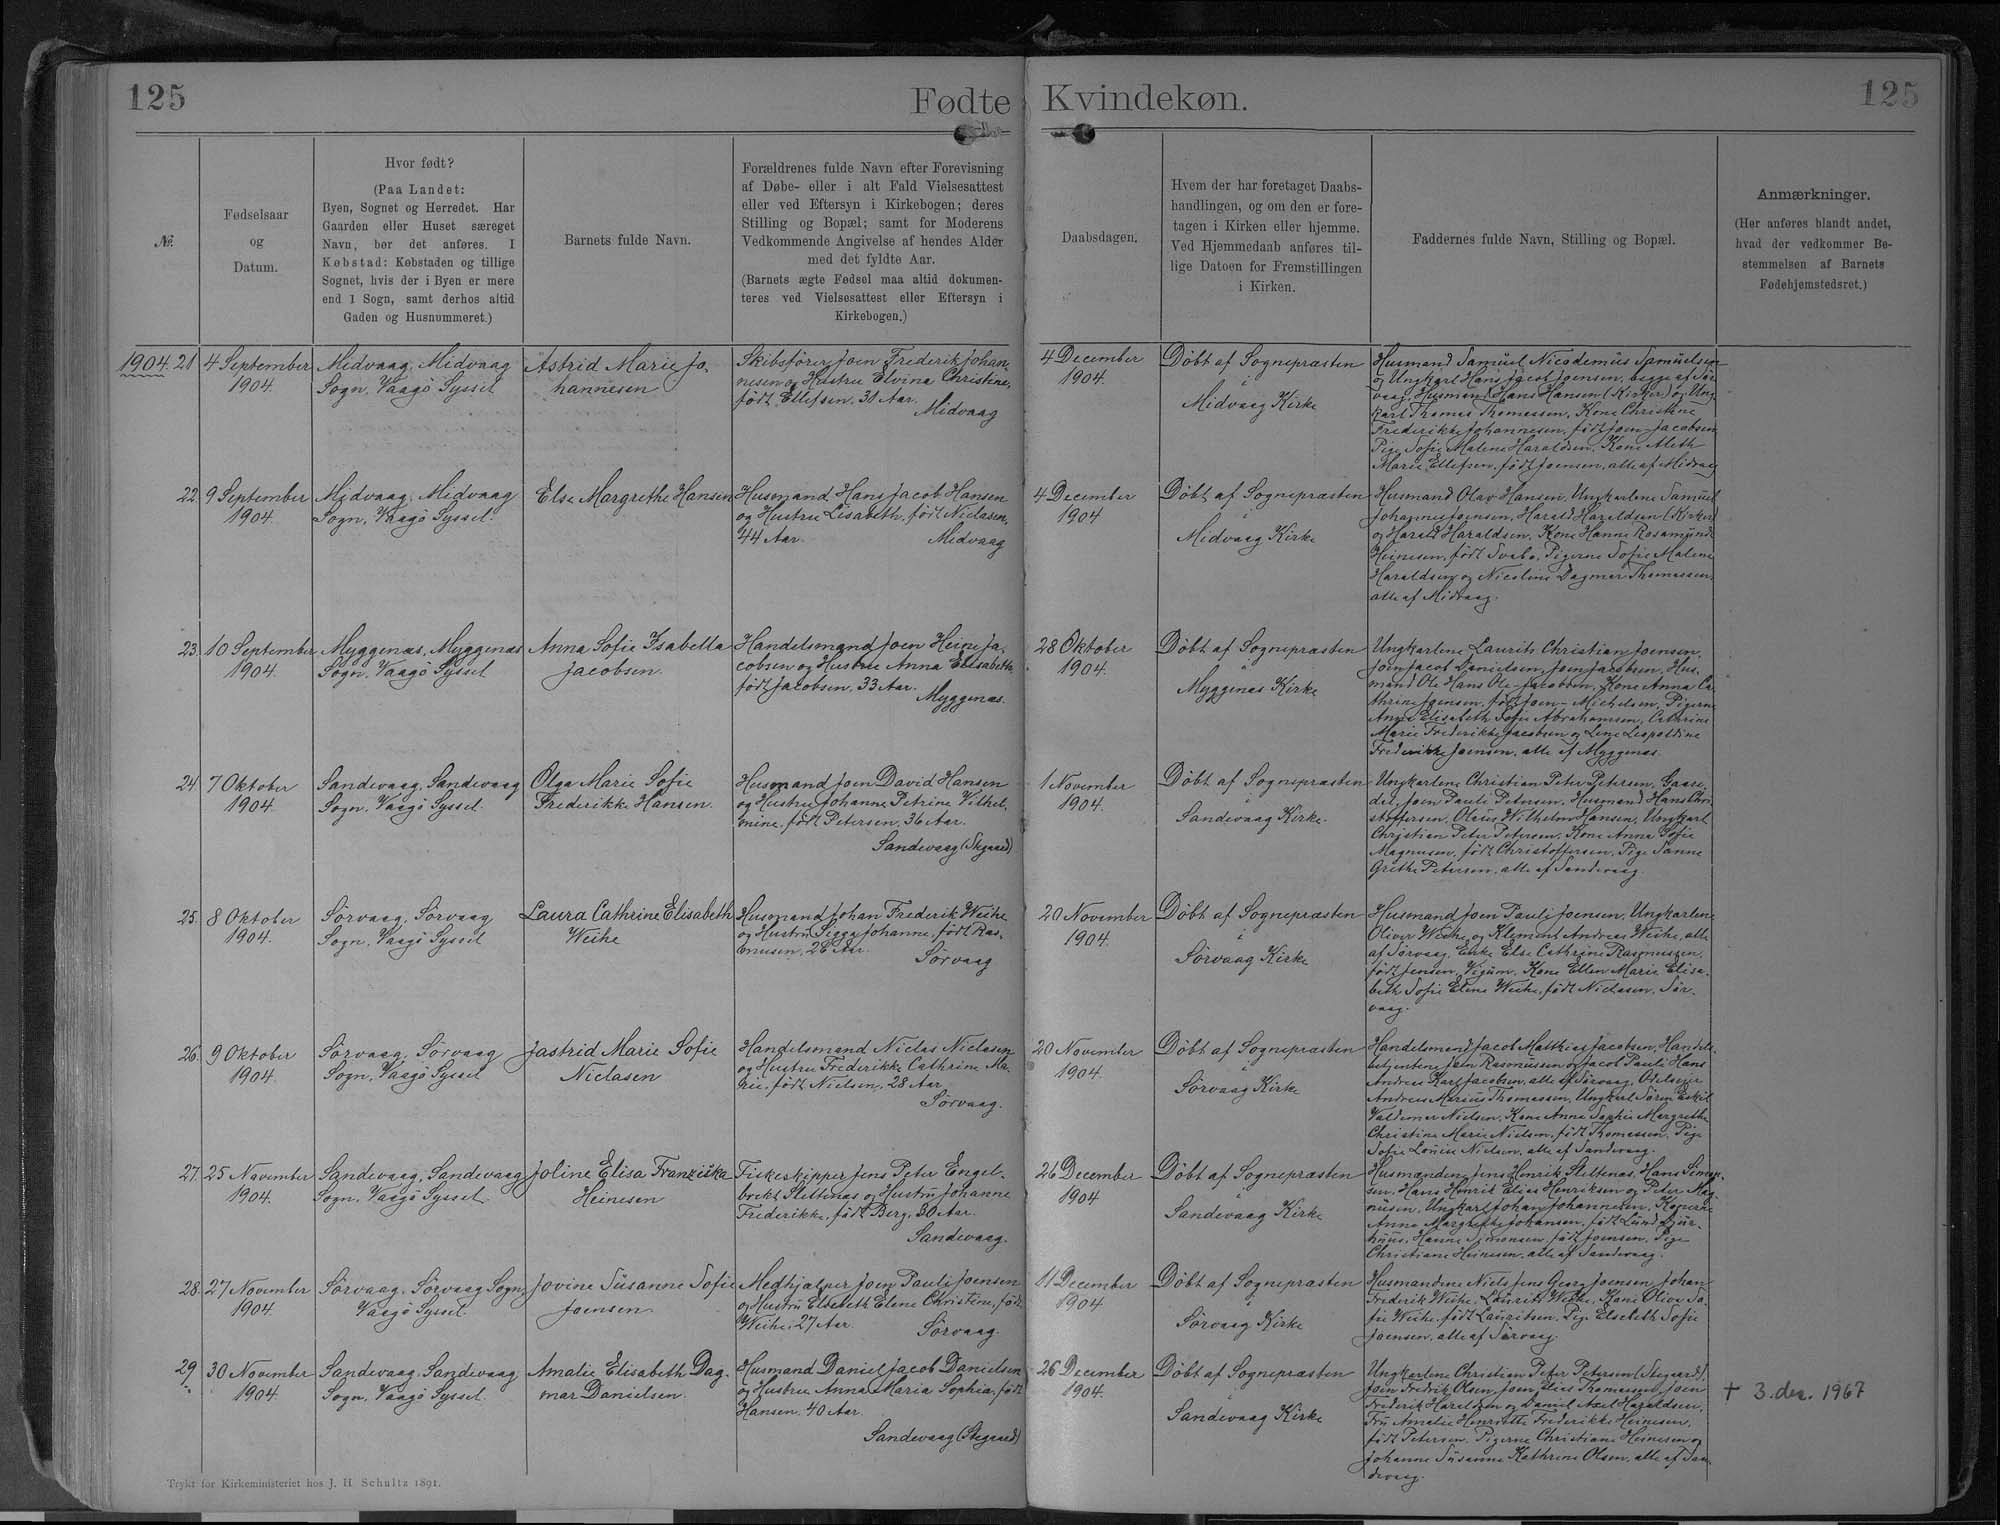 125
Fødte
Kvindekøn.
125
№.
Fødselsaar
og
Datum.
Hvor født?
(Paa Landet:
Byen, Sognet og Herredet. Har
Gaarden eller Huset særeget
Navn, bør det anføres. I
Købstad: Købstaden og tillige
Sognet, hvis der i Byen er mere
end 1 Sogn, samt derhos altid
Gaden og Husnummeret.)
Barnets fulde Navn.
Forældrenes fulde Navn efter Forevisning
af Døbe- eller i alt Fald Vielsesattest
eller ved Eftersyn i Kirkebogen; deres
Stilling og Bopæl; samt for Moderens
Vedkommende Angivelse af hendes Alder
med det fyldte Aar.
(Barnets ægte Fødsel maa altid dokumen-
teres ved Vielsesattest eller Eftersyn i
Kirkebogen.)
Daabsdagen.
Hvem der har foretaget Daabs-
handlingen, og om den er fore-
tagen i Kirken eller hjemme.
Ved Hjemmedaab anføres til-
lige Datoen for Fremstillingen
i Kirken.
Faddernes fulde Navn, Stilling og Bopæl.
Anmærkninger.
(Her anføres blandt andet,
hvad der vedkommer Be-
stemmelsen af Barnets
Fødehjemstedsret.)
1904. 21
4 September
1904.
Midvaag, Midvaag
Sogn, Vaagø Syssel
Astrid Marie Jo-
hannesen
Skibsfører Joen Frederik Johan-
nesen og Hustru Elvina Christine,
født Ellefsen, 31 Aar.
Midvaag
4 December
1904.
Døbt af Sognepræsten
i
Midvaag Kirke
Husmand Samuel Nicodemus Samuelsen
og Ungkarl Hans Jacob Joensen, begge af Sør-
vaag, Husmand Hans Hansen (Kirken) og Ung-
karl Thomas Thomassen, Kone Christine
Frederikke Johannesen, født Joen-Jacobsen
Pige Sofie Malene Haraldsen, Kone Aleth
Marie Ellefsen, født Joensen, alle af Midvaag
22.
9 September
1904.
Midvaag, Midvaag
Sogn, Vaagø Syssel.
Else Margrethe Hansen
Husmand Hans Jacob Hansen
og Hustru Lisabeth, født Niclasen,
44 Aar.
Midvaag
4 December
1904
Døbt af Sognepræsten
i
Midvaag Kirke
Husmand Olav Hansen, Ungkarlene Samuel
Johannes Joensen, Harald Haraldsen (Kirken)
og Harald Haraldsen, Kone Hanne Rosamunde
Heinesen, født Svabo, Pigerne Sofie Malene
Haraldsen og Nicoline Dagmar Thomassen,
alle af Midvaag.
23.
10 September
1904.
Myggenæs, Myggenæs
Sogn, Vaagø Syssel
Anna Sofie Isabella
Jacobsen.
Handelsmand Joen Heine Ja-
cobsen og Hustru Anna Elisabeth,
født Jacobsen, 33 Aar.
Myggenæs.
28 Oktober
1904.
Døbt af Sognepræsten
i
Myggenæs Kirke
Ungkarlene Laurits Christian Joensen,
Joen Jacob Danielsen, Joen Jacobsen, Hus-
mand Ole Hans Ole-Jacobsen, Kone Anna Ca-
thrine Joensen, født Joen-Michelsen, Pigerne
Anna Elisabeth Sofie Abrahamsen, Cathrine
Marie Frederikke Jacobsen og Lene Leopoldine
Frederikke Joensen, alle af Myggenæs.
24.
7 Oktober
1904.
Sandevaag, Sandevaag
Sogn, Vaagø Syssel
Olga Marie Sofie
Frederikke Hansen.
Husmand Joen David Hansen
og Hustru Johanne Petrine Vilhel-
mine, født Petersen, 36 Aar.
Sandevaag (Skgaard)
1 November
1904.
Døbt af Sognepræsten
i
Sandevaag Kirke.
Ungkarlene Christian Peter Petersen,
Joen Pauli Petersen, Husmand Hans Chri-
stoffersen, Olaus Wilhelm Hansen, Ungkarl
Christian Peter Petersen, Kone Anna Sofie
Magnusen, født Christoffersen, Pige Sanne
Grethe Petersen, alle af Sandevaag.
25.
8 Oktober
1904.
Sørvaag, Sørvaag
Sogn, Vaagø Syssel
Laura Cathrine Elisabeth
Weihe
Husmand Johan Frederik Weihe
og Hustru Sigga Johanne, født Ras-
musen, 28 Aar.
Sørvaag
20 November
1904.
Døbt af Sognepræsten
i
Sørvaag Kirke
Husmand Joen Pauli Joensen, Ungkarlene
Oliver Weihe og Klement Andreas Weihe, alle
af Sørvaag, Enke Else Cathrine Rasmussen,
født Jensen, Vigum, Kone Ellen Marie Elisa-
beth Sofie Elene Weihe, født Niclasen, Sør-
vaag.
26.
9 Oktober
1904.
Sørvaag, Sørvaag
Sogn, Vaagø Syssel
Jastrid Marie Sofie
Niclasen
Handelsmand Niclas Niclasen
og Hustru Frederikke Cathrine Ma-
rie, født Nielsen, 28 Aar
Sørvaag.
20 November
1904.
Døbt af Sognepræsten
i
Sørvaag Kirke
Handelsmand Jacob Matthias Jacobsen, Handels-
betjentene Joen Rasmussen og Jacob Pauli Hans
Andreas Karl Jacobsen, alle af Sørvaag,
Andreas Marius Thomassen, Ungkarl Søren Eskil
Valdemar Nielsen, Kone Anna Sophie Margrethe
Christine Marie Nielsen, født Thomassen, Pige
Sofie Louise Nielsen, alle af Sandevaag.
27.
25 November
1904.
Sandevaag, Sandevaag
Sogn, Vaagø Syssel
Joline Elisa Franziska
Heinesen
Fiskeskipper Jens Peter Engel-
brekt Slettenæs og Hustru Johanne
Frederikke, født Berg, 30 Aar.
Sandevaag.
26 December
1904
Døbt af Sognepræsten
i
Sandevaag Kirke
Husmændene Jens Henrik Slettenæs, Hans Simon-
sen, Hans Henrik Elias Henriksen og Peter Mag-
nusen, Ungkarl Johan Johannesen, Konerne
Anna Margrethe Johansen, født Lund Djur-
huus, Hanne Simonsen, født Joensen, Pige
Christiane Heinesen, alle af Sandevaag.
28.
27 November
1904
Sørvaag, Sørvaag Sogn,
Vaagø Syssel.
Jovine Susanne Sofie
Joensen
Medhjælper Joen Pauli Joensen
og Hustru Elsebeth Elene Christine, født
Weihe, 27 Aar.
Sørvaag.
11 December
1904
Døbt af Sognepræsten
i
Sørvaag Kirke
Husmændene Niels Jens Georg Joensen, Johan
Frederik Weihe, Laurits Weihe, Kone Olive So-
fie Weihe, født Lauritsen, Pige Elsebeth Sofie
Joensen, alle af Sørvaag.
29
30 November
1904.
Sandevaag, Sandevaag
Sogn, Vaagø Syssel.
Amalie Elisabeth Dag-
mar Danielsen.
Husmand Daniel Jacob Danielsen
og Hustru Anna Maria Sophia, født
Hansen, 40 Aar.
Sandevaag (Skgaard)
26 December
1904.
Døbt af Sognepræsten
i
Sandevaag Kirke
Ungkarlene Christian Peter Petersen (Skgaard),
Joen Fredrik Olsen, Joen Elias Thomassen, Joen
Frederik Haraldsen og Daniel Axel Haraldsen,
Fru Amalie Henriette Frederikke Heinesen,
født Petersen, Pigerne Christiane Heinesen og
Johanne Susanne Kathrine Olsen, alle af San-
devaag.
† 3. des. 1967
Trykt for Kirkeministeriet hos J. H Schultz 1891.